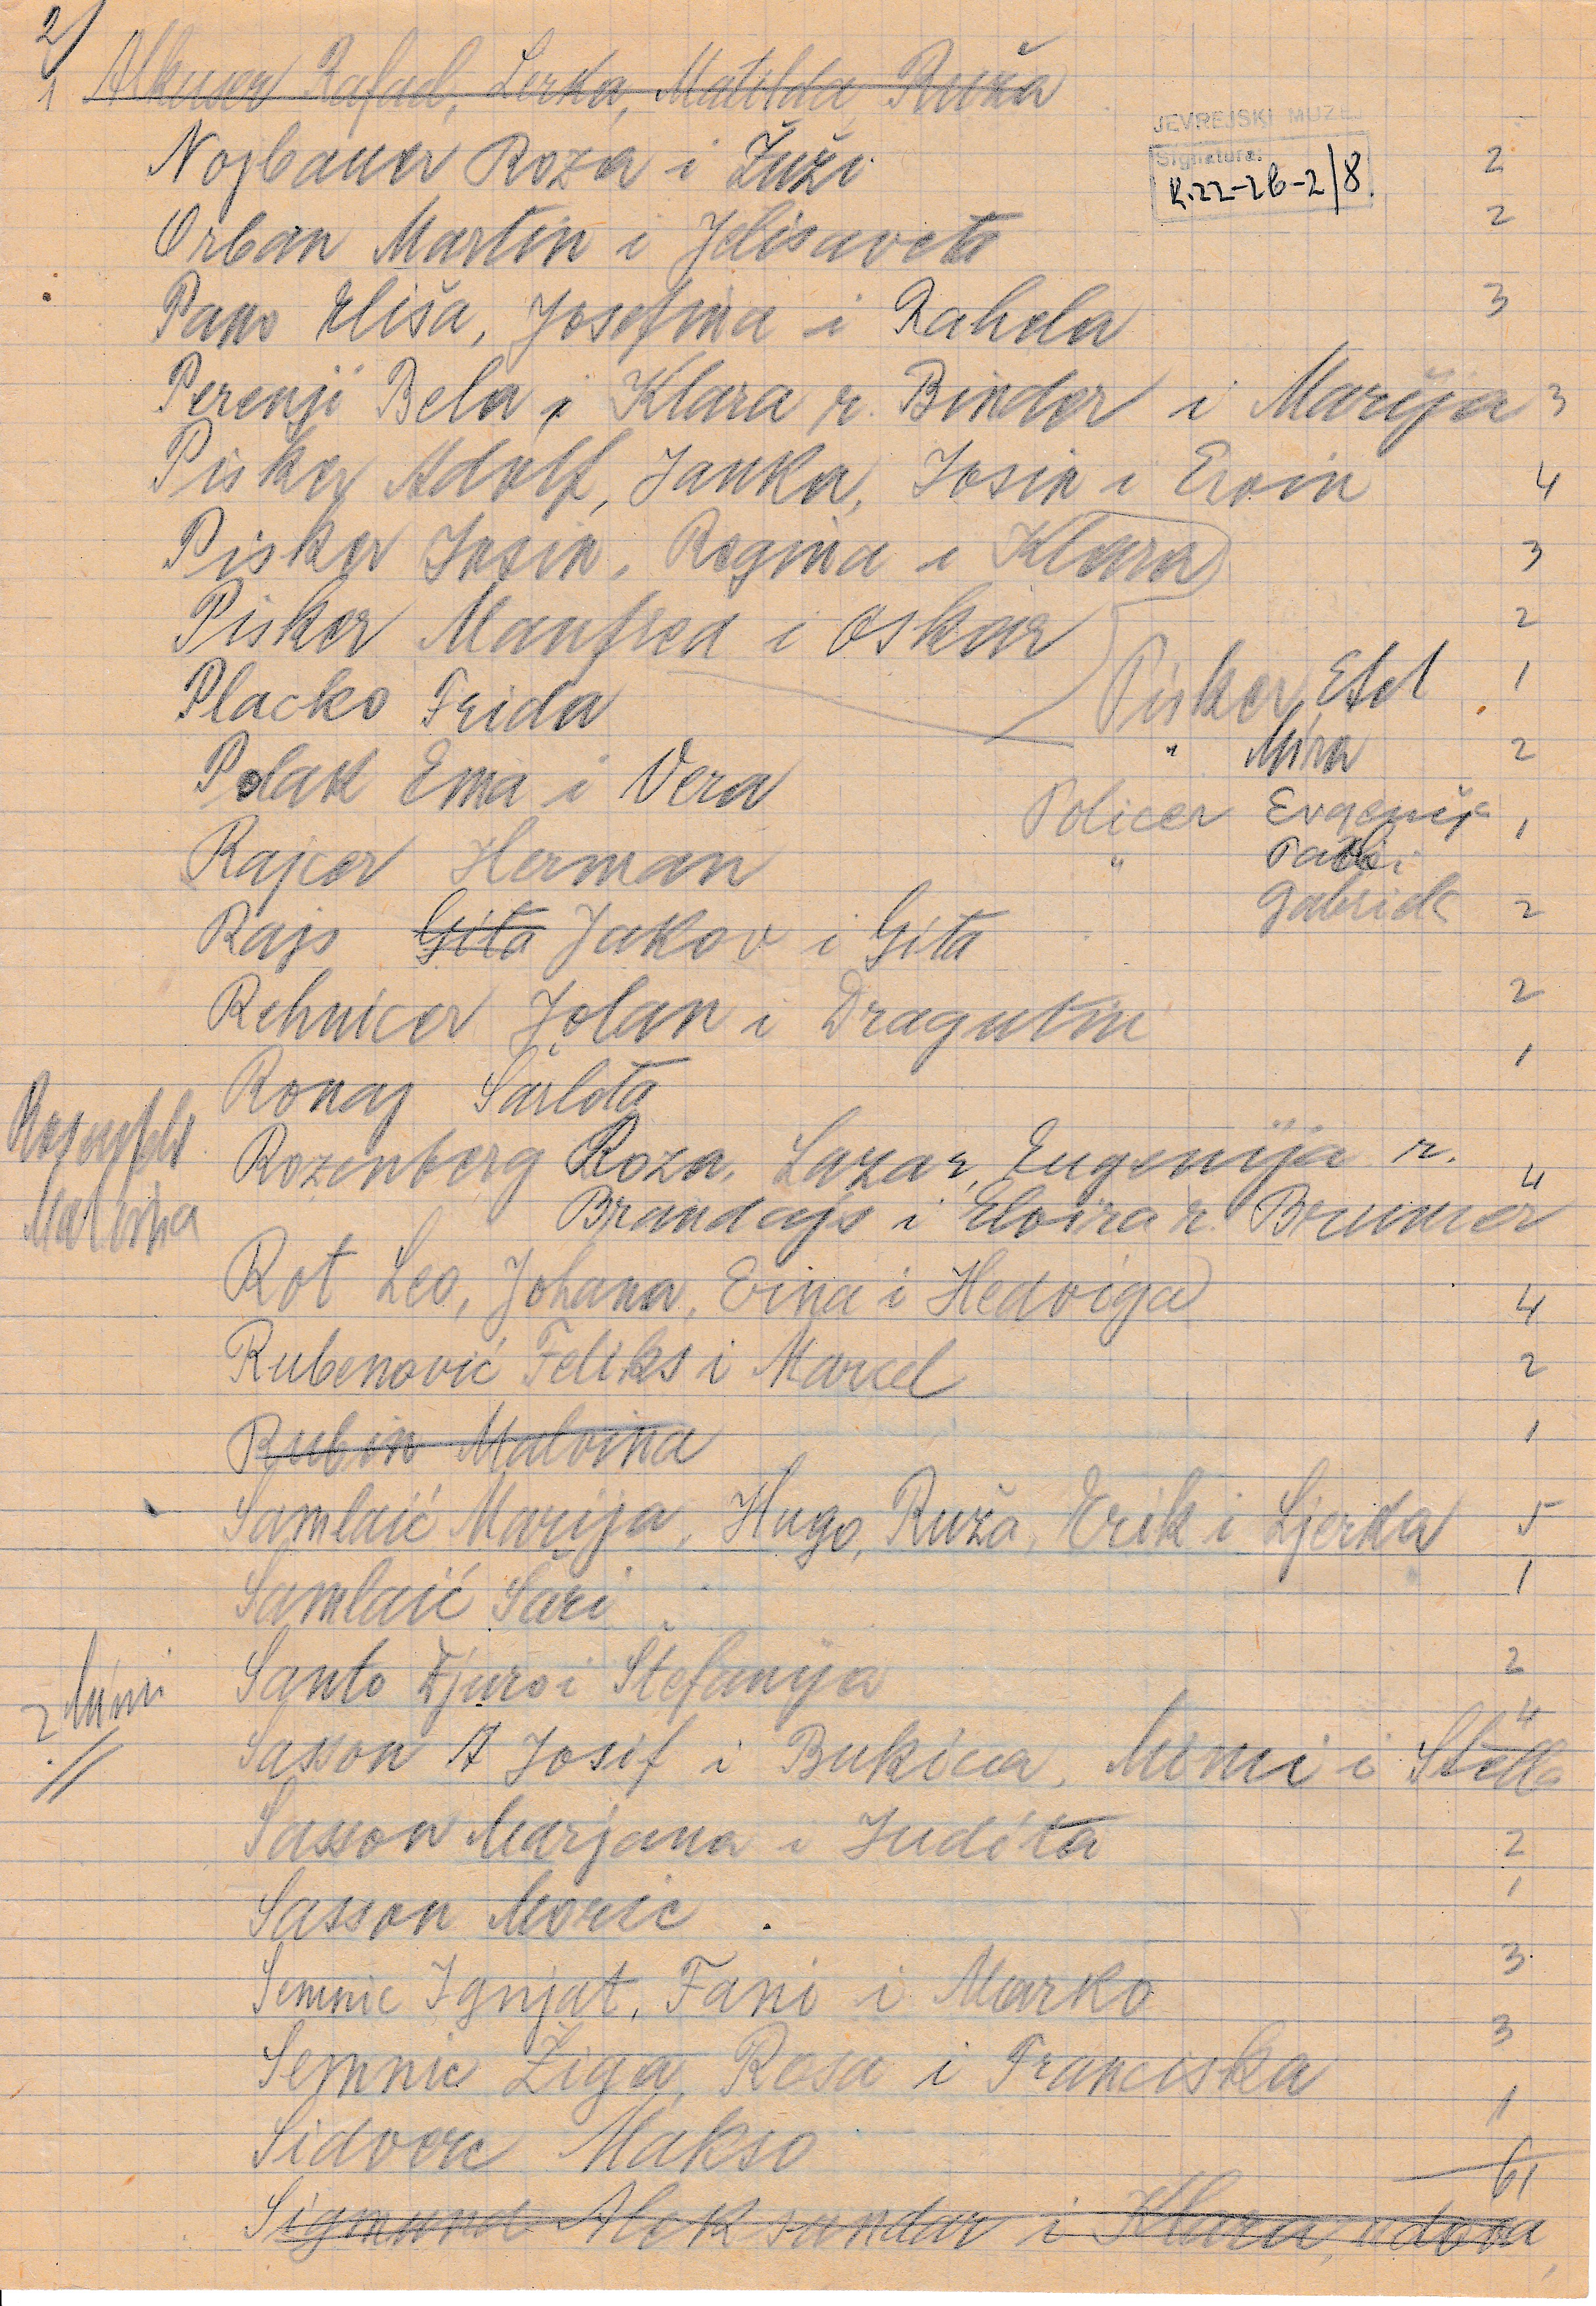 2/
1 Rafael, Lerka, Matilda, Ruža
JEVREJSKI MUZEJ
Signatura:
K.22-2b-2/8
Nojbauer Roza i Žuži 2
Orban Martin i Jelisaveta 2
Pano Eliša, Josefina i Rahela 3
Perenji Bela i Klara r. Binder i Marija 3
Pisker Adolf, Janka, Josin i Ervin 4
Pisker Josin, Regina i Klara 3
Pisker Manfred i Oskar 2
Pisker Etel 1
Placko Frida
" Mira 2
Polak Ema i Vera
Policer Evgenija 1
Rajcer Herman
"
Gabriela 2
Rajs Gita Jakov i Gita
Rehnicer Jolan i Dragutin 2
Ronaj Šarlota 1
Rozenfeld
Malvina
Rozenberg Roza, Lazar, Eugenija r. 4
Brandajs i Elvira r. Brunner
Rot Leo, Johana, Ervina i Hedviga 4
Rubenović Feliks i Marcel 2
Rubin Malvina 1
Samlaić Marija, Hugo, Ruža, Erik i Ljerka 5
Samlaić Šari 1
Santo Djuro i Štefanija 2
? Mimi
Sasson A Josif i Bukica, Mimi i Stella 4
Sasson Marjana i Judita 2
Sasson Moric 1
Semnic Ignjat, Fani i Marko 3
Semnic Žiga, Rosa i Franciska 3
Sidverc Makso 1
61
Sigmund Aleksandar i Klara, udova,